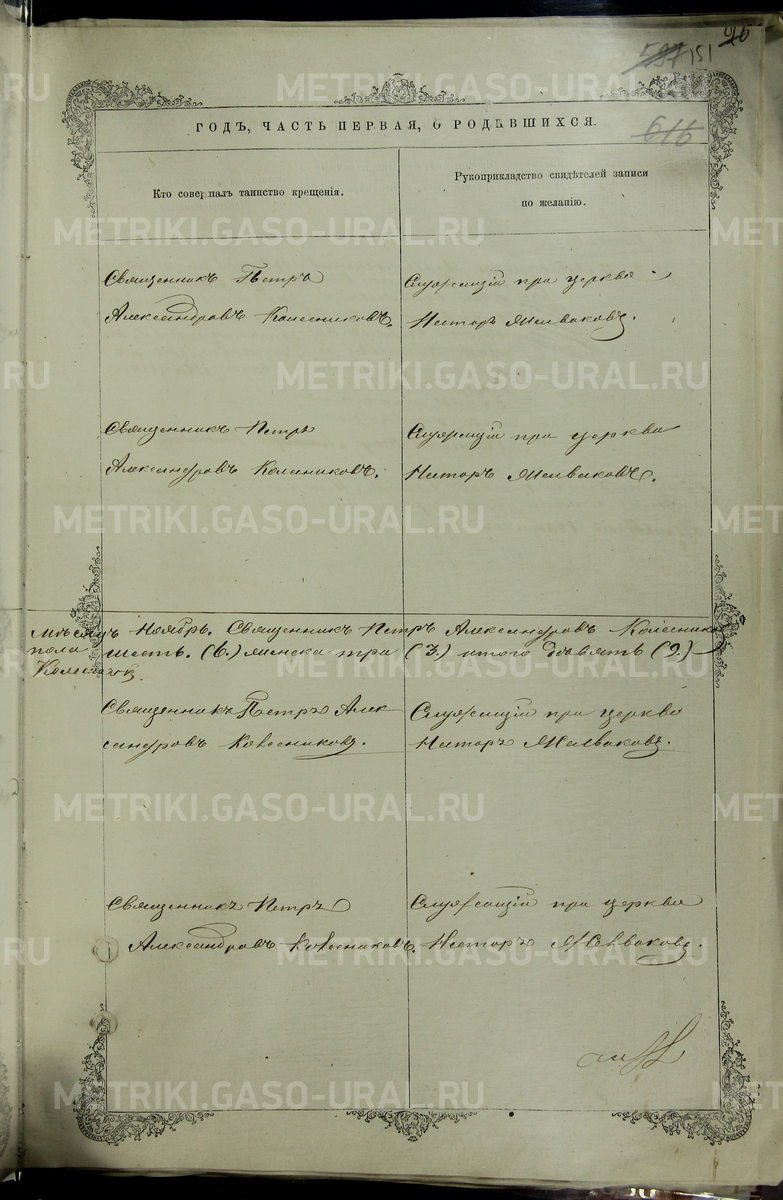 26
597 151
616
ГОДЪ, ЧАСТЬ ПЕРВАЯ, О РОДИВШИХСЯ.
Кто совершалъ таинство крещенія.
Рукоприкладство свидѣтелей записи
по желанію.
Священникъ Петръ
Александровъ Колесниковъ.
Служащій при церкви
Несторъ Желваковъ.
Священникъ Петръ
Александровъ Колесниковъ.
Служащій при церкви
Несторъ Желваковъ.
мѣсяцъ Ноябрь. Священникъ Петръ Александровъ Колесников
пола шесть (6.) женска три (3.) итого девять (9.)
Священникъ Петръ Алек-
сандровъ Колесниковъ.
Служащій при церкви
Несторъ Желваковъ.
Священникъ Петръ
Александровъ Колесниковъ.
Служащій при церкви
Несторъ Желваковъ.
METRIKI.GASO-URAL.RU